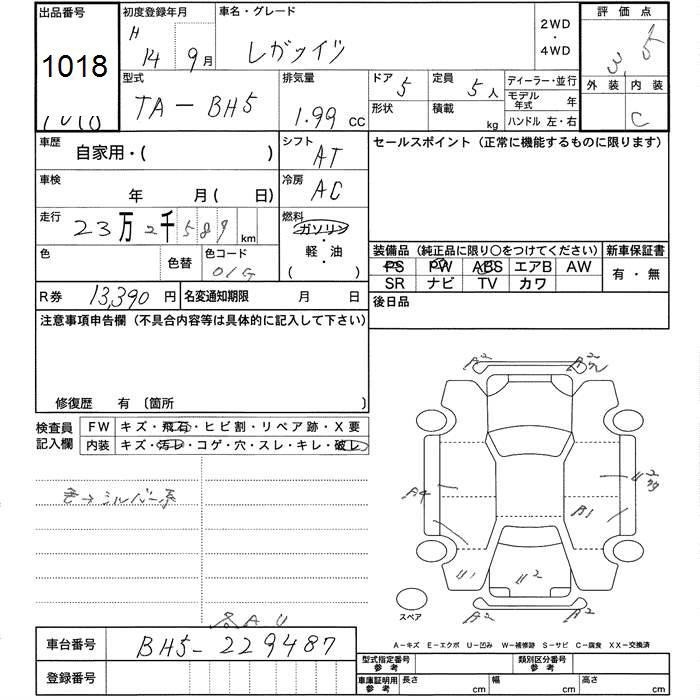 出品番号 初度登録年月 車名・グレード 2WD ・ 4WD 評価点
1018 H 14 9月 3.5
外装 内装
C
型式 排気量 ドア 定員 ディーラー・並行
TA-BH5 1.99 CC 5 5人 モデル年式 年
形状 積載 kg ハンドル 左・右
車歴 自家用・( ) シフト AT セールスポイント(正常に機能するものに限ります)
車検 年 月( 日) 冷房 AC
走行 23万2千589km 燃料 ガソリン ・ 軽・油 ( )
色 色替 色コード 01G
装備品(純正品に限り○をつけてください) 新車保証書
PS PW ABS エアB AW 有・無
SR ナビ TV カワ
R券 13,390円 名変通知期限 月 日 後日品
注意事項申告欄(不具合内容等は具体的に記入して下さい)
修復歴 有 〔箇所 〕
検査員記入欄 FW キズ・飛石・ヒビ割・リペア跡・X要
内装 キズ・汚レ・コゲ・穴・スレ・キレ・破レ
色→シルバー系
A2
A4
B1
U1
U2
A2
A2
スペア
A-キズ E-エクボ U-凹み W-補修跡 S-サビ C-腐食 XX-交換済
車台番号 BH5-229487
登録番号
型式指定番号参考 類別区分番号参考
車庫証明用参考 長さ cm 幅 cm 高さ cm